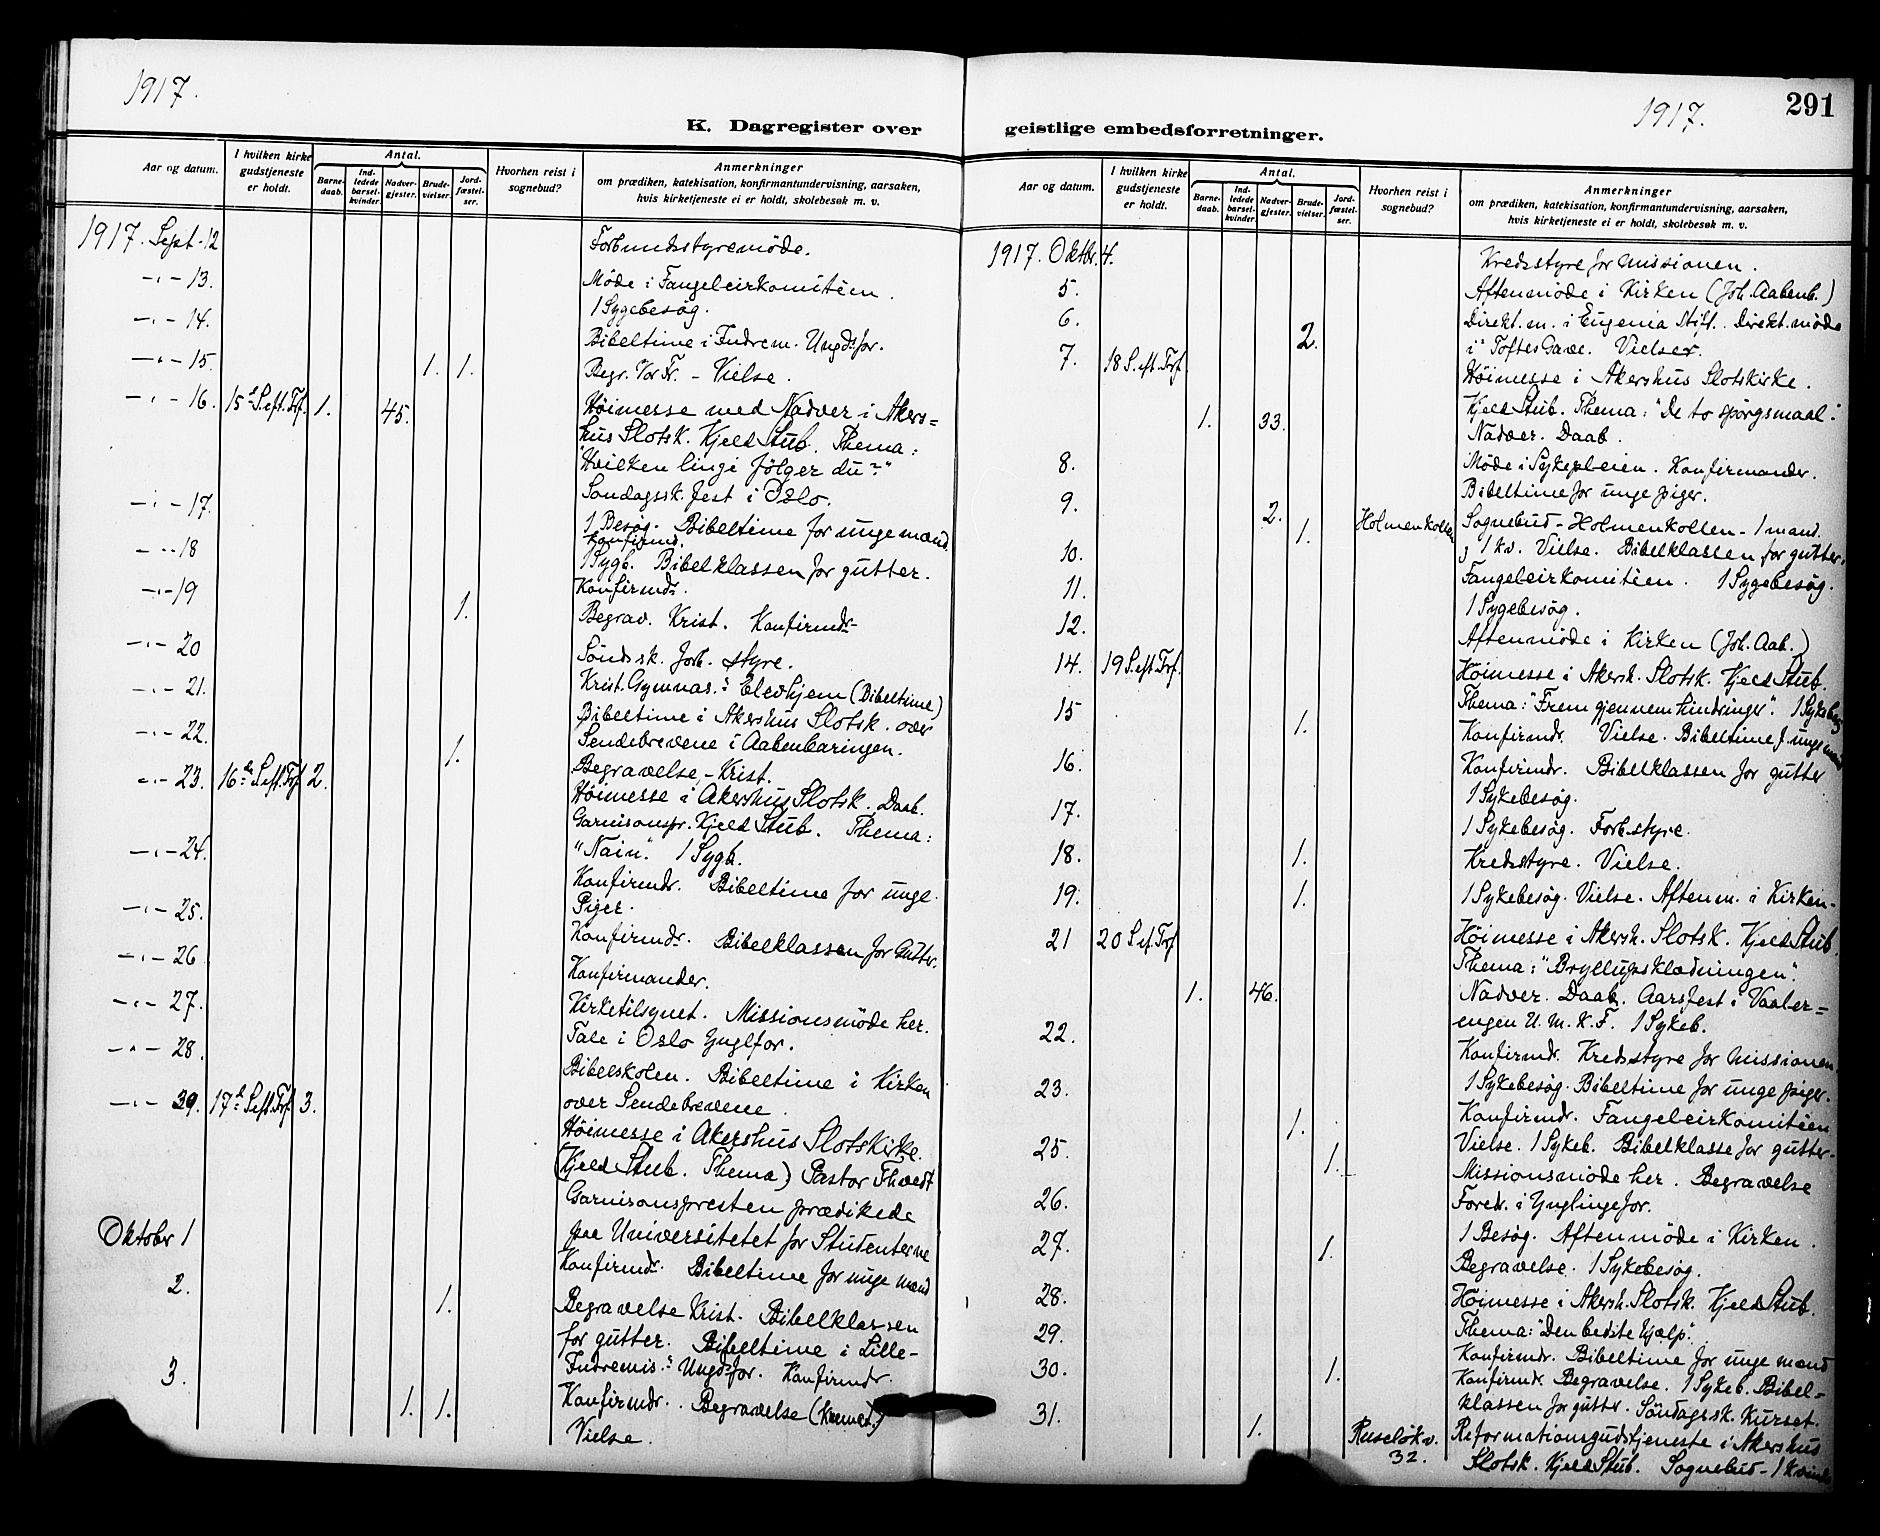 1917.
K. Dagregister over
Aar og datum.
I hvilken kirke gudstjeneste er holdt.
Antal.
Barne-daab.
Ind-ledede barsel-kvinder.
Nadver-gjester.
Brude-vielser.
Jord-fæstel-ser.
Hvorhen reist i sognebud?
Anmerkninger
om prædiken, katekisation, konfirmantundervisning, aarsaken,
hvis kirketjeneste ei er holdt, skolebesøk m. v.
1917. Sept. 12 Forbundsstyremöde.
-"- 13. Möde i Fangeleirkomitéen.
-"- 14. 1 Sygebesög.
Bibeltime i Indrem. Ungdsfor.
-"- 15. 1. 1. Begr. Vor Fr. - Vielse.
-"- 16. 15d S. eft. Trf. 1. 45. Höimesse med Nadver i Akers=
hus Slotsk. Kjeld Stub. Thema:
"Hvilken linje fölger du?"
-"- 17. Söndagssk. fest i Oslo.
1 Besög. Bibeltime for unge mænd.
-"- 18 Konfirmd.
1 Sygb. Bibelklassen for gutter.
-"- 19 Konfirmdr.
1. Begrav. Krist. Konfirmdr.
-"- 20 Söndsk. forb. styre.
-"- 21. Krist. Gymnas.s Elevhjem (Bibeltime)
-"- 22. Bibeltime i Akershus Slotsk. over
Sendebrevene i Aabenbaringen.
1. Begravelse - Krist.
-"- 23. 16de S. eft. Trf. 2. Höimesse i Akershus Slotsk. Daab.
Garnisonspr. Kjeld Stub. Thema:
"Nain". 1 Sygb.
-"- 24. Konfirmdr. Bibeltime for unge
Piger.
-"- 25. Konfirmdr. Bibelklassen for Gutter.
-"- 26. Konfirmander.
-"- 27. Kirketilsynet. Missionsmöde her.
Tale i Oslo Ynglfor.
-"- 28. Bibelskolen. Bibeltime i Kirken
over Sendebrevene.
-"- 39. 17d S. eft. Trf. 3. Höimesse i Akershus Slotskirke.
(Kjeld Stub. Thema) Pastor Thvedt
Garnisonspresten prædikede
paa Universitetet for Studenterne
Oktober 1 Konfirmdr. Bibeltime for unge mænd
2. 1. Begravelse Krist. Bibelklassen
for gutter. Bibeltime i Lille-
Indremis.s Ungdsfor. Konfirmdr.
3. 1. 1. Konfirmdr. Begravelse (Kremat.)
Vielse.
1917.
291
geistlige embedsforretninger.
Aar og datum.
I hvilken kirke gudstjeneste er holdt.
Antal.
Barne-daab.
Ind-ledede barsel-kvinder.
Nadver-gjester.
Brude-vielser.
Jord-fæstel-ser.
Hvorhen reist i sognebud?
Anmerkninger
om prædiken, katekisation, konfirmantundervisning, aarsaken,
hvis kirketjeneste ei er holdt, skolebesøk m. v.
1917. Oktbr. 4. Kredsstyre for missionen.
5. Aftenmöde i Kirken (Joh. Aabenb.)
6. Direkt. m. i Eugenia Stift. Direkt. möde
2. i Toftes Gave. Vielser.
7. 18 S. eft. Trf. Höimesse i Akershus Slotskirke.
1. 33. Kjeld Stub. Thema: "De to spörgsmaal".
Nadver. Daab.
8. Möde i Sykepleien. Konfirmander.
Bibeltime for unge piger.
9. 2. Holmenkollen Sognebud - Holmenkollen - 1 mand.
1. & 1 kv. Vielse. Bibelklassen for gutter.
10. Fangeleirkomitéen. 1 Sygebesög.
11. 1 Sygebesög.
12. Aftenmöde i Kirken (Joh. Aab.)
14. 19 S. eft. Trf. Höimesse i Akersh. Slotsk. Kjeld Stub.
Thema: "Frem gjennem hindringer". 1 Sykebes
15 1. Konfirmdr. Vielse. Bibeltime f. unge mænd
16. Konfirmdr. Bibelklassen for gutter
1 Sykebesög.
17. 1 Sykebesög. Forbstyre.
18. 1. Kredsstyre. Vielse.
19. 1. 1 Sykebesög. Vielse. Aftenm. i Kirken.
21 20 S. ef. Trf. Höimesse i Akersh. Slotsk. Kjeld Stub.
Thema: "Bryllupsklædningen"
1. 46. Nadver. Daab. Aarsfest i Vaaler=
engen U. M. K. F. 1 Sykeb.
22. Konfirmdr. Kredsstyre for missionen.
1 Sykebesög. Bibeltime for unge piger.
23. Konfirmdr. Fangeleirkomitéen
1. Vielse. 1 Sykeb. Bibelklasse for gutter.
25. 1. Missionsmöde her. Begravelse
Foredr. i Ynglingefor.
26. 1 Besög. Aftenmöde i Kirken.
27. 1. Begravelse. 1 Sykebesög.
28. Höimesse i Akersh. Slotsk. Kjeld Stub.
Thema: "Den bedste hjælp".
29. Konfirmdr. Bibeltime for unge mænd
30. 1. Konfirmdr. Begravelse. 1 Sykeb. Bibel=
klassen for gutter. Söndagssk. Kurset.
31. 1. Ruselökv. 32. Reformationsgudstjeneste i Akershus
Slotsk. Kjeld Stub. Sognebud - 1 kvinde